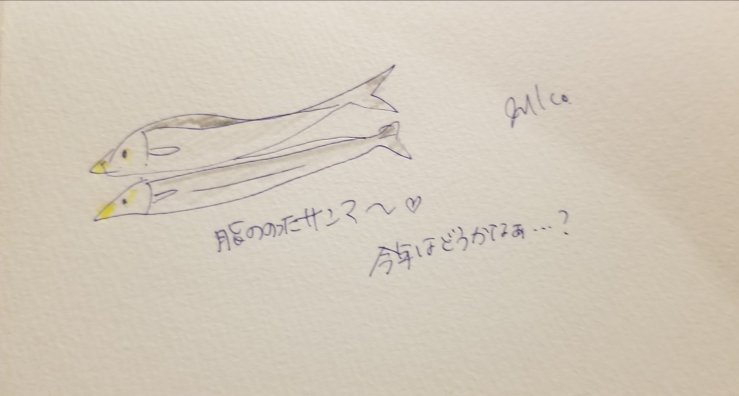 脂ののったサンマ～♡
今年はどうかなぁ…?